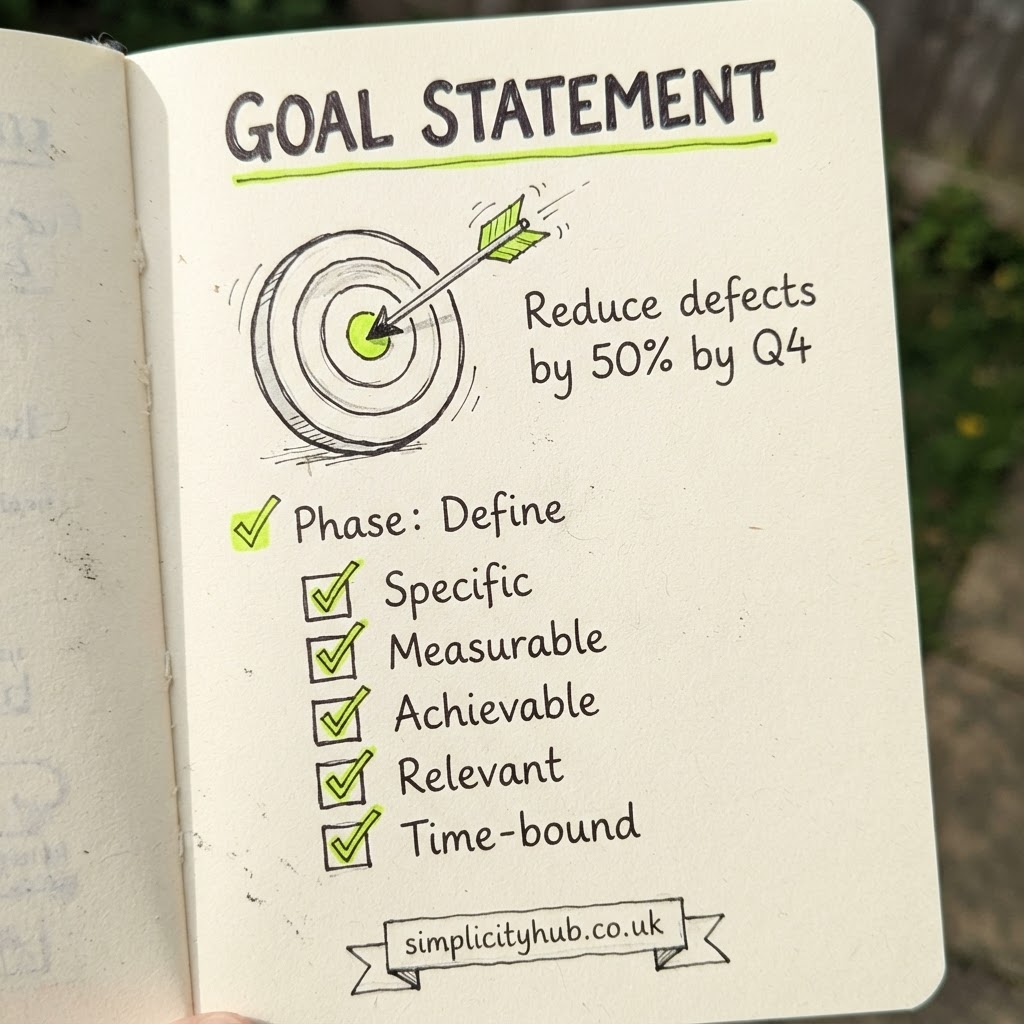 GOAL STATEMENT
Reduce defects
by 50% by Q4
Phase: Define
Specific
Measurable
Achievable
Relevant
Time-bound
simplicityhub.co.uk